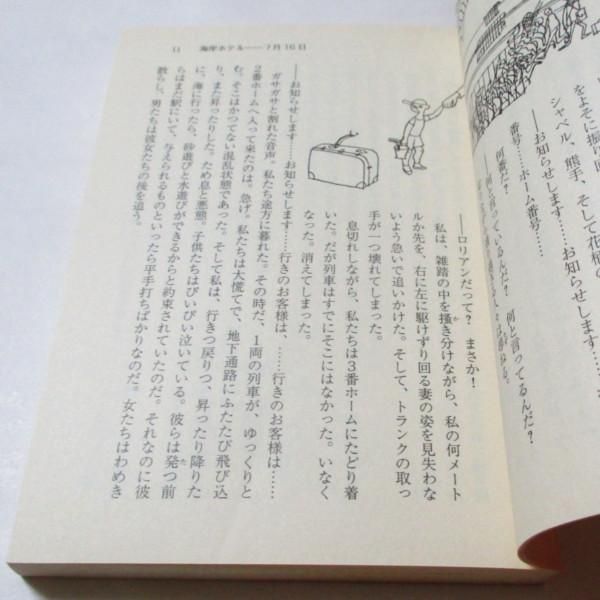 をよそに振り
シャベル、熊手、そして花柄の
――お知らせします……お知らせし
番号……ホーム番号……
何番だ?
何と言っているんだ?
何と言ってるんだ?
11 海岸ホテル――7月16日
――ロリアンだって? まさか!
私は、雑踏の中を掻き分けながら、私の何メート
ルか先を、右に左に駆けずり回る妻の姿を見失わな
いよう急いで追いかけた。そして、トランクの取っ
手が一つ壊れてしまった。
息切れしながら、私たちは3番ホームにたどり着
いた。だが列車はすでにそこにはなかった。いなく
なった。消えてしまった。
――お知らせします……お知らせします……行きのお客様は、……行きのお客様は……
ガサガサと割れた音声。私たち途方に暮れた。その時だ、1両の列車が、ゆっくりと
2番ホームへ入って来たのは。急げ。私たちは大慌てで、地下通路にふたたび飛び込
む。そこはかつてない混乱状態であった。そして私は、行きつ戻りつ、昇ったり降りた
り、また昇ったりした。ため息と悪態。子供たちはぴいぴい泣いている。彼らは発つ前
に、海に行ったら、砂遊びと水遊びができるからと約束されていたのだ。それなのに彼
らはまだ駅にいて、与えられるものといったら平手打ちばかりなのだ。女たちはわめき
散らし、男たちは彼女たちの後を追う。